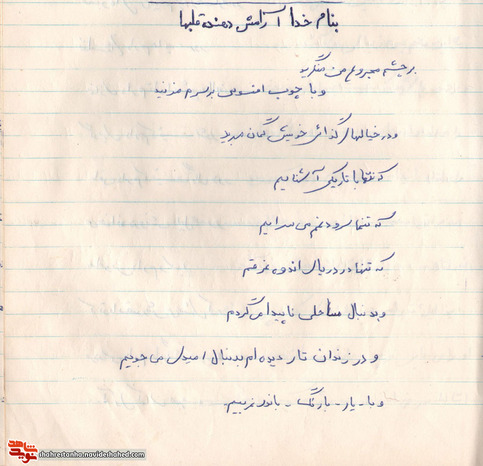 بنام خدا آرامش دهنده قلبها
بر چشم مجروح من منگرید
و با چوب افسوس بر سرم مزنید
و در خیالهای گذرای خویش گمان مبرید
که تنها با تاریکی آشنایم
که تنها سرود غم می سرایم
که تنها در دریای اندوه غرقم
و بدنبال ساحلی ناپیدا می گردم
و در زندان تار دیده ام بدنبال امیدی می جویم
و با - یار - با
شاهد
نوید
shahrestanha.navideshahed.com